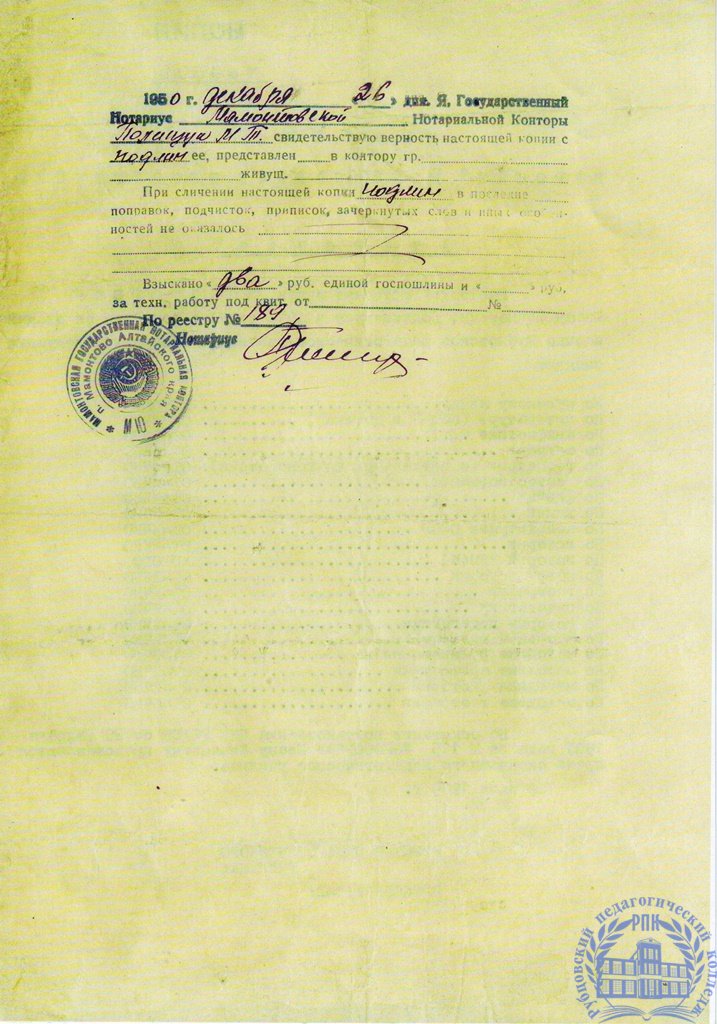 1950 г. декабря 26 » дня. Я, Государственный
Нотариус Мамонтовской Нотариальной Конторы
Полищук М.Т. свидетельствую верность настоящей копии с
подлин ее, представлен в контору гр.
живущ.
При сличении настоящей копии подлин в последне
поправок, подчисток, приписок, зачеркнутых слов и иных особен-
ностей не оказалось
Взыскано « два » руб. единой госпошлины и « » руб.
за техн. работу под квит. от №
По реестру № 189
Нотариус
МАМОНТОВСКАЯ ГОСУДАРСТВЕННАЯ НОТАРИАЛЬНАЯ КОНТОРА
п. Мамонтово Алтайского края
* МЮ *
Рубцовский педагогический колледж
РПК